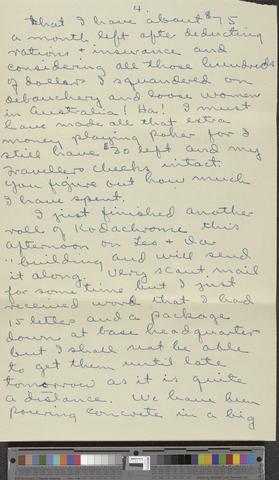 4.
that I have about $75
a month left after deducting
rations + insurance and
considering all those hundreds
of dollars I squandered on
debauchery and loose women
in Australia! Ha! I must
have made all that extra
money playing poker for I
still have $30 left and my
travellers checks intact.
You figure out how much
I have spent.
I just finished another
roll of Kodachrome this
afternoon on Les +
building and will send
it along. Very scant mail
for some time but I just
received word that I had
15 letters and a package
down at base headquarter
but I shall not be able
to get them until late
tomorrow as it is quite
a distance. We have been
pouring concrete in a big